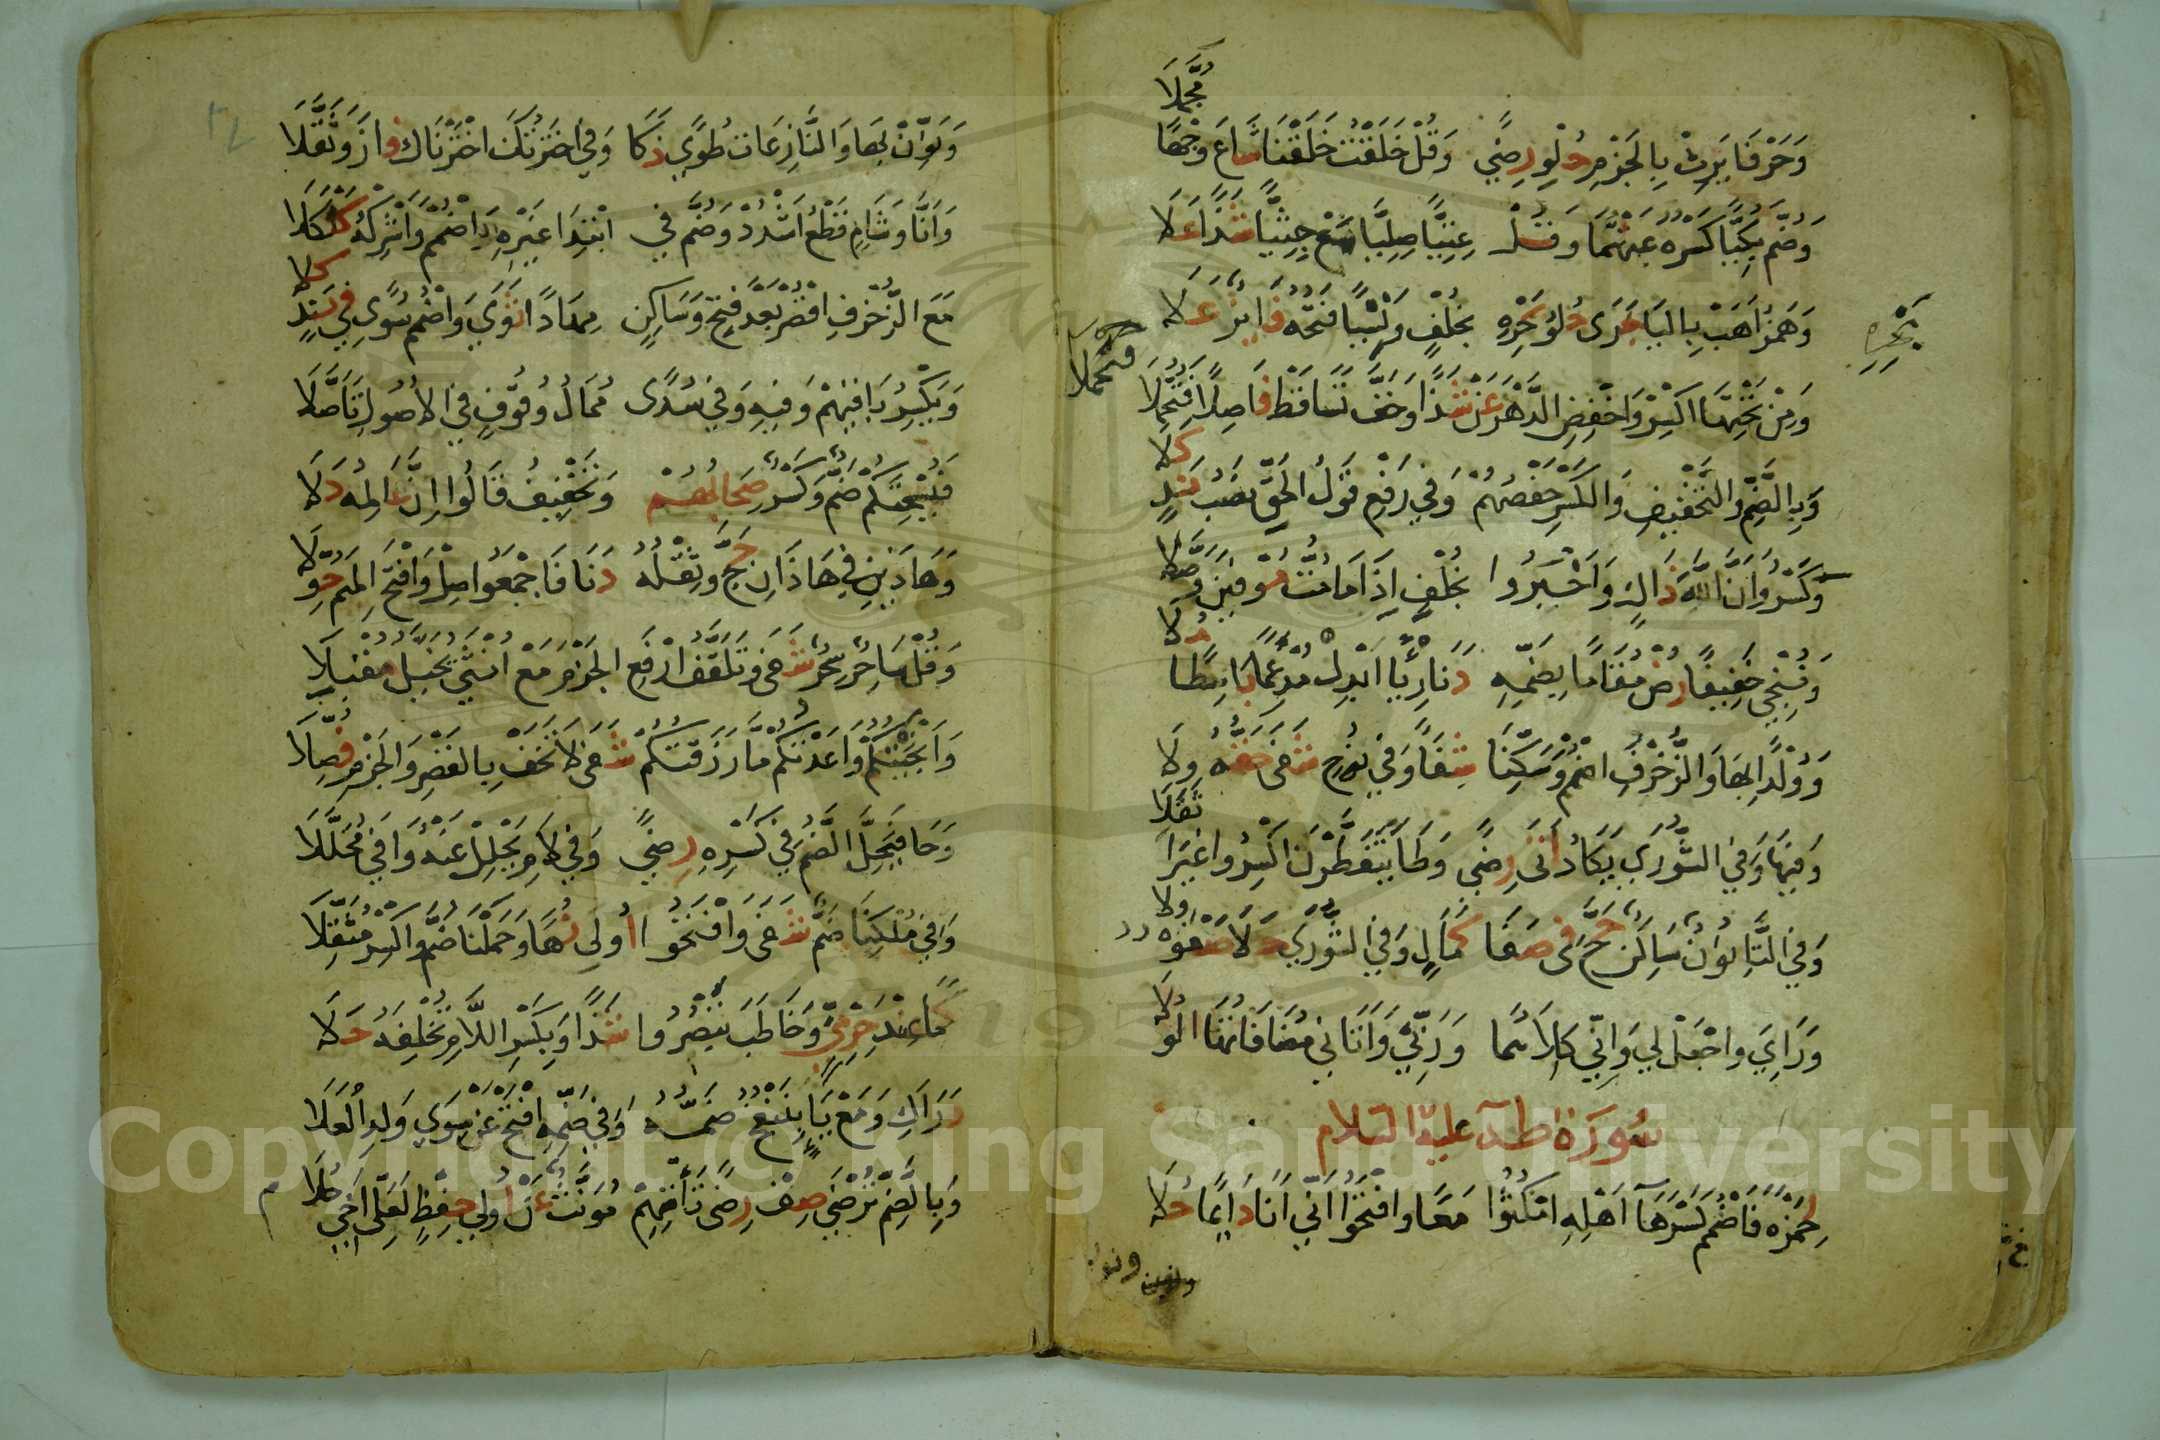 وَحَرْفَا يَرِثْ بِالجَزْمِ حُلْوُ رِضًي وَقُلْ خَلَقْتُ خَلَقْنَا شَاعَ وَجْهًا
مُجَمَّلَا
وَضَمُّ بُكِيًّا كَسْرُهُ عَنْهُمَا وَقُلْ عِتِيًّا صِلِيًّا مَعْ جِثِيًّا شَذًا عَلَا
وَهَمْزُ اَهَبْ بِاليَا جَرَى حُلْوُ بَحْرِهِ بِخُلْفٍ وَنِسْيًا فَتْحُهُ فَائِزٌ عَلَا
بَحْرِهِ
وَمِنْ تَحْتِهَا اكْسِرْ وَاخْفِضِ الدَّهْرَ عَنْ شَذًا وَخَفَّ تَسَاقَطْ فَاصِلًا فَتُحُمِّلَا
فتحملا
وَبِالضَّمِّ وَالتَّخْفِيفِ وَالكَسْرِ حَفْصُهُمْ وَفِي رَفْعِ قَوْلُ الحَقِّ نَصْبُ نَدٍ
كَلَا
وَكَسْرُ وَاَنَّ اللَّهَ ذَاكٍ وَاَخْبَرُوا بِخُلْفٍ اِذَا مَا مُتُّ مُوفِينَ وُصَّلَا
وَنُنْجِي خَفِيفًا رُضْ مُقَامًا بِضَمِّهِ دَنَا رِئْيًا ابْدِلْ مُدْغَمًا بَاسِطًا
مُلَا
وَوُلْدًا بِهَا وَالزُّخْرُفِ اضْمُمْ وَسَكِّنَا شِفَاءً وَفِي نُوحٍ شَفَى حَقُّهُ وِلَا
وَفِيهَا وَفِي الشُّورَى يَكَادُ اَتَى رِضًي وَطَا يَتَفَطَّرْنَ اكْسِرُوا غَيْرَ
اَثْقَلَا
وَفِي التَّاءِ نُونٌ سَاكِنٌ حَجَّ فِي صَفَا كَمَالٍ وَفِي الشُّورَى حَلَا صَفْوُهُ
وِلَا
وَرَاءِيَ وَاجْعَلْ لِي وَاِنِّي كِلَاهُمَا وَرَبِّي وَاَتَانِي مُضَافَاتُهَا الوُلَا
سُورَةُ طه عليه السلام
لِحَمْزَةَ فَاضْمُمْ كَسْرَهَا اَهْلِهِ امْكُثُوا مَعًا وَافْتَحُوا اَنِّي اَنَا دَايِمًا حُلَا
ونون
وَنَوِّنْ بِهَا وَالنَّازِعَاتِ طُوًي ذَكَا وَفِي اخْتَرْتُكَ اخْتَرْنَاكَ فَازَ وَثَقَّلَا
وَاَنَّا وَشَامٍ قَطْعُ اشْدُدْ وَضُمَّ فِي ابْتِدَا غَيْرِهِ وَاضْمُمْ وَاَشْرِكْهُ كَلْكَلَا
مَعَ الزُّخْرُفِ اقْصُرْ بَعْدَ فَتْحٍ وَسَاكِنٍ مِهَادًا ثَوَى وَاضْمُمْ سُوًي فِي نَدٍ
كَلَا
وَيَكْسِرُ بَاقِيهِمْ وَفِيهِ وَفِي سُدًى مُمَالُ وُقُوفٍ فِي الاُصُولِ تَأَصَّلَا
فَيُسْحِتَكُمْ ضَمٌّ وَكَسْرٌ صِحَابُهُمْ وَتَخْفِيفُ قَالُوا اِنَّ عَالِمُهُ دَلَا
وَهَاذَيْنِ فِي هَاذَانِ حَجَّ وَثِقْلُهُ دَنَا فَاجْمَعُوا صِلْ وَافْتَحِ المِيمَ حُوَّلَا
وَقُلْ سَاحِرٍ سِحْرٍ شَفَى وَتَلَقَّفُ ارْفَعِ الجَزْمَ مَعْ اُنْثَى يُخَيَّلُ مُقْبِلَا
وَاَنْجَيْتُكُمْ وَاعَدْتُكُمْ مَا رَزَقْتُكُمْ شَفَى لَا تَخَفْ بِالقَصْرِ وَالجَزْمِ فُصِّلَا
وَحَا فَيَحِلَّ الضَّمُّ فِي كَسْرِهِ رِضًي وَفِي لَامِ يَحْلِلْ عَنْهُ وَافَى مُحَلَّلَا
وَفِي مُلْكِنَا ضَمٌّ شَفَى وَافْتَحُوا اُولِي نُهًا وَحَمَلْنَا ضُمَّ وَاكْسِرْ مُثَقِّلَا
كَمَا عِنْدَ حِرْمِيٍّ وَخَاطَبَ يَبْصُرُوا شَذًا وَبِكَسْرِ اللَّامِ تُخْلِفَهُ حَلَا
دَرَاكِ وَمَعْ يَاءٍ بِنَنْفُخُ ضَمُّهُ وَفِي ضَمِّهِ افْتَحْ عَنْ سِوَى وَلَدِ العَلَا
وَبِالضَّمِّ تُرْضَى صِفْ رِضًى تَأْتِهِمْ مُؤَنَّثٌ عَنْ اُولِي حِفْظٍ لَعَلِّي اَخِي حُلَا